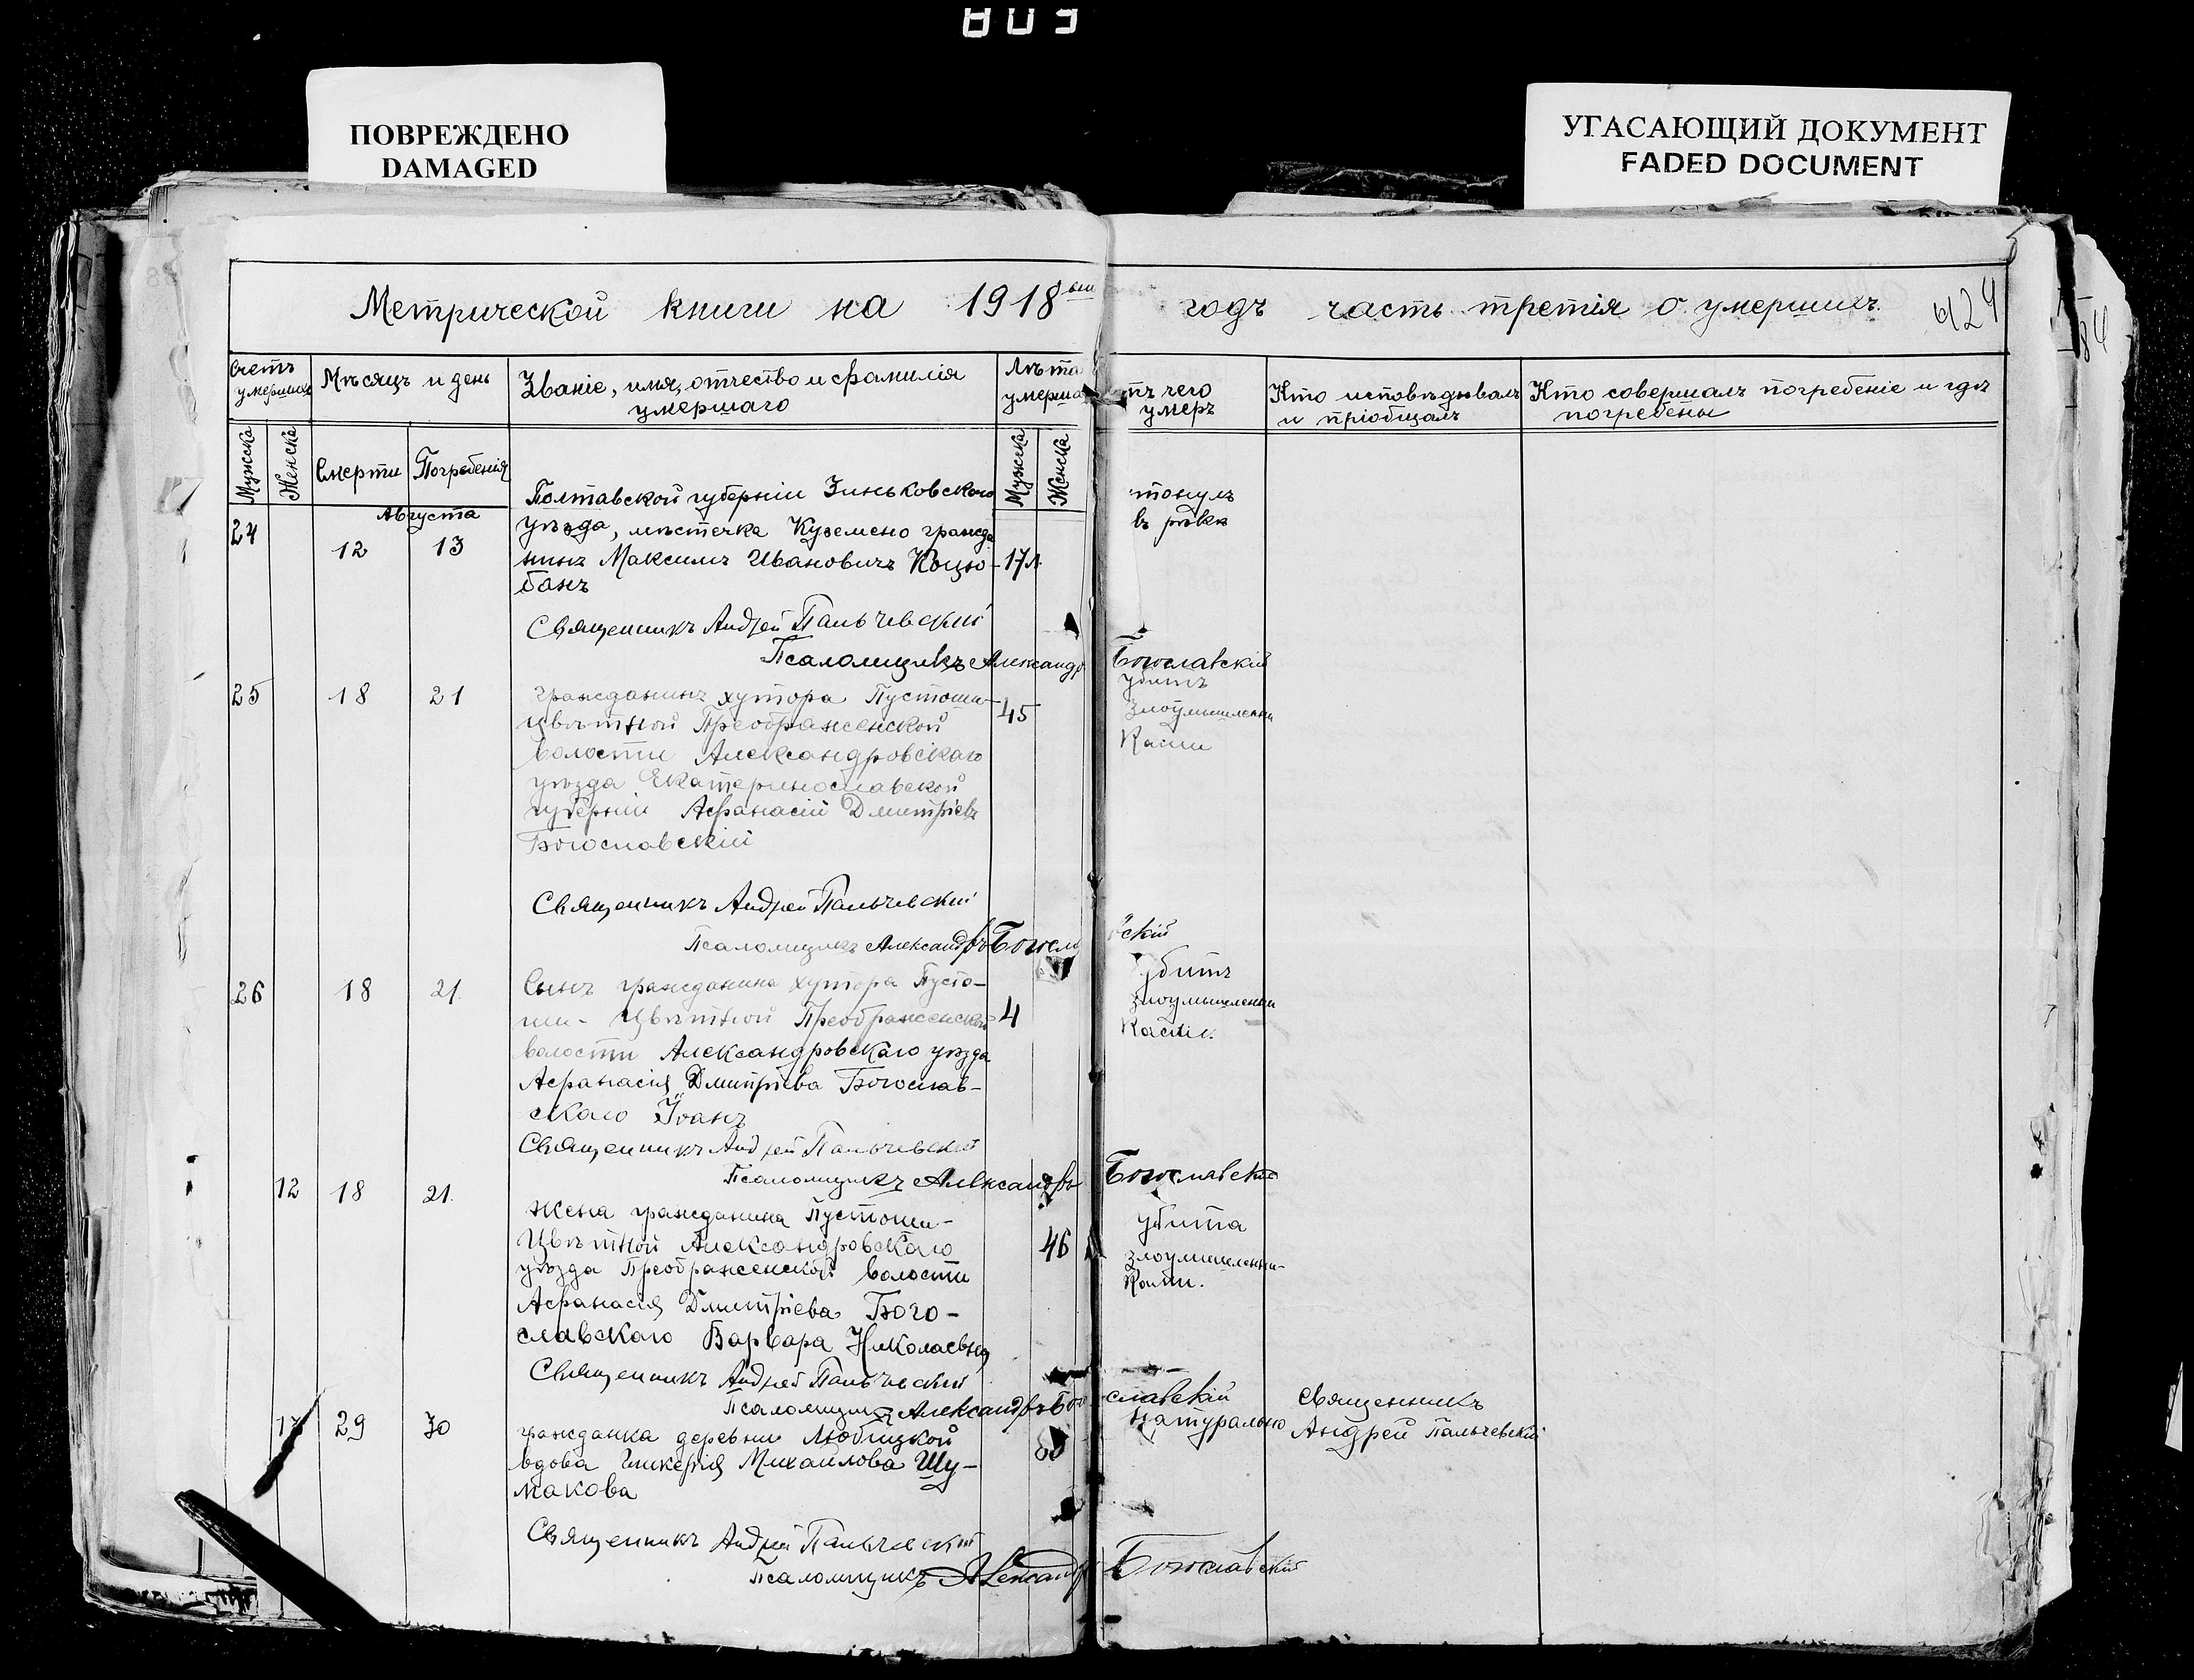 803
ПОВРЕЖДЕНО
DAMAGED
УГАСАЮЩИЙ ДОКУМЕНТ
FADED DOCUMENT
Метрической книги на 1918 годъ часть третія о умершихъ. 424
Счетъ умершихъ
Мѣсяцъ и день
Званіе, имя, отчество и фамилія
умершаго
Лѣта
умерша
тъ чего
умеръ
Кто исповѣдывалъ
и пріобщалъ
Кто совершалъ погребеніе и гдѣ
погребены
Мужска
Женска
Смерти
Погребенія
Мужска
Женска
Августа
24
12
13
Полтавской губерніи Зиньковского
уѣзда, мѣстечка Куземено гражда
нинъ Максимъ Ивановичъ Коцю-
банъ
17 л.
тонулъ
въ рѣкѣ
Священникъ Андрей Пальчевскій
Псаломщикъ Александръ Богославскій
25
18
21
гражданинъ хутора Пустоши-
Цвѣтной Преображенской
волости Александровскаго
уѣзда Екатеринославской
губерніи Афанасій Дмитріевъ
Богославскій
45
убитъ
злоумышленни
ками
Священникъ Андрей Пальчевскій
Псаломщикъ Александръ Богосл скій
26
18
21.
Сынъ гражданина хутора Пусто-
ши- Цвѣтной Преображенской
волости Александровскаго уѣзда
Афанасія Дмитріева Богослав-
скаго Іоанъ
4
убитъ
злоумышленни
ками.
Священникъ Андрей Пальчевскій
Псаломщикъ Александръ Богославскій
12
18
21.
жена гражданина Пустоши-
Цвѣтной Александровскаго
уѣзда Преображенской волости
Афанасія Дмитріева Бого-
славскаго Варвара Николаевна
46
убита
злоумышленни-
ками.
Священникъ Андрей Пальчевскій
Псаломщикъ Александръ Богославскій
29
30
гражданка деревни Любицкой
вдова Гликерія Михайлова Шу-
макова
натурально
Священникъ
Андрей Пальчевскій
Священникъ Андрей Пальчевскій
Псаломщикъ Александръ Богославскій